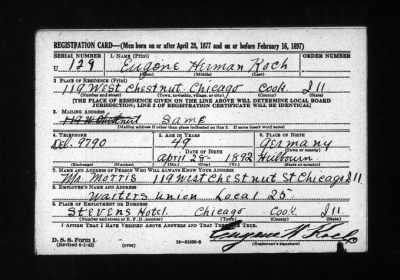 REGISTRATION CARD—(Men born on or after April 28, 1877 and on or before February 16, 1897)
SERIAL NUMBER 1. NAME (Print) ORDER NUMBER
U 129 Eugene Herman Koch
(First) (Middle) (Last)
2. PLACE OF RESIDENCE (Print)
119 West Chestnut Chicago Cook Ill
(Number and street) (Town, township, village, or city) (County) (State)
[THE PLACE OF RESIDENCE GIVEN ON THE LINE ABOVE WILL DETERMINE LOCAL BOARD
JURISDICTION; LINE 2 OF REGISTRATION CERTIFICATE WILL BE IDENTICAL]
3. MAILING ADDRESS
119 W Chestnut Same
[Mailing address if other than place indicated on line 2. If same insert word same]
4. TELEPHONE 5. AGE IN YEARS 6. PLACE OF BIRTH
Del. 9790 49 Germany
DATE OF BIRTH (Town or county)
April 28- 1892
(Exchange) (Number) (Mo.) (Day) (Yr.) (State or country)
7. NAME AND ADDRESS OF PERSON WHO WILL ALWAYS KNOW YOUR ADDRESS
Mr. Morris 119 West Chestnut St Chicago Ill
8. EMPLOYER'S NAME AND ADDRESS
Waiters Union Local 25
9. PLACE OF EMPLOYMENT OR BUSINESS
Stevens Hotel. Chicago Cook Ill
(Number and street or R. F. D. number) (Town) (County) (State)
I AFFIRM THAT I HAVE VERIFIED ABOVE ANSWERS AND THAT THEY ARE TRUE.
D. S. S. Form 1 Eugene H Koch
(Revised 4-1-42) (over) (Registrant's signature)